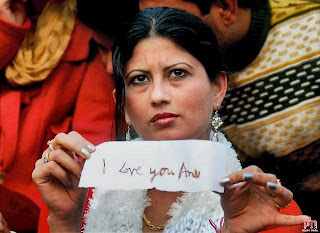 I Love you Anu